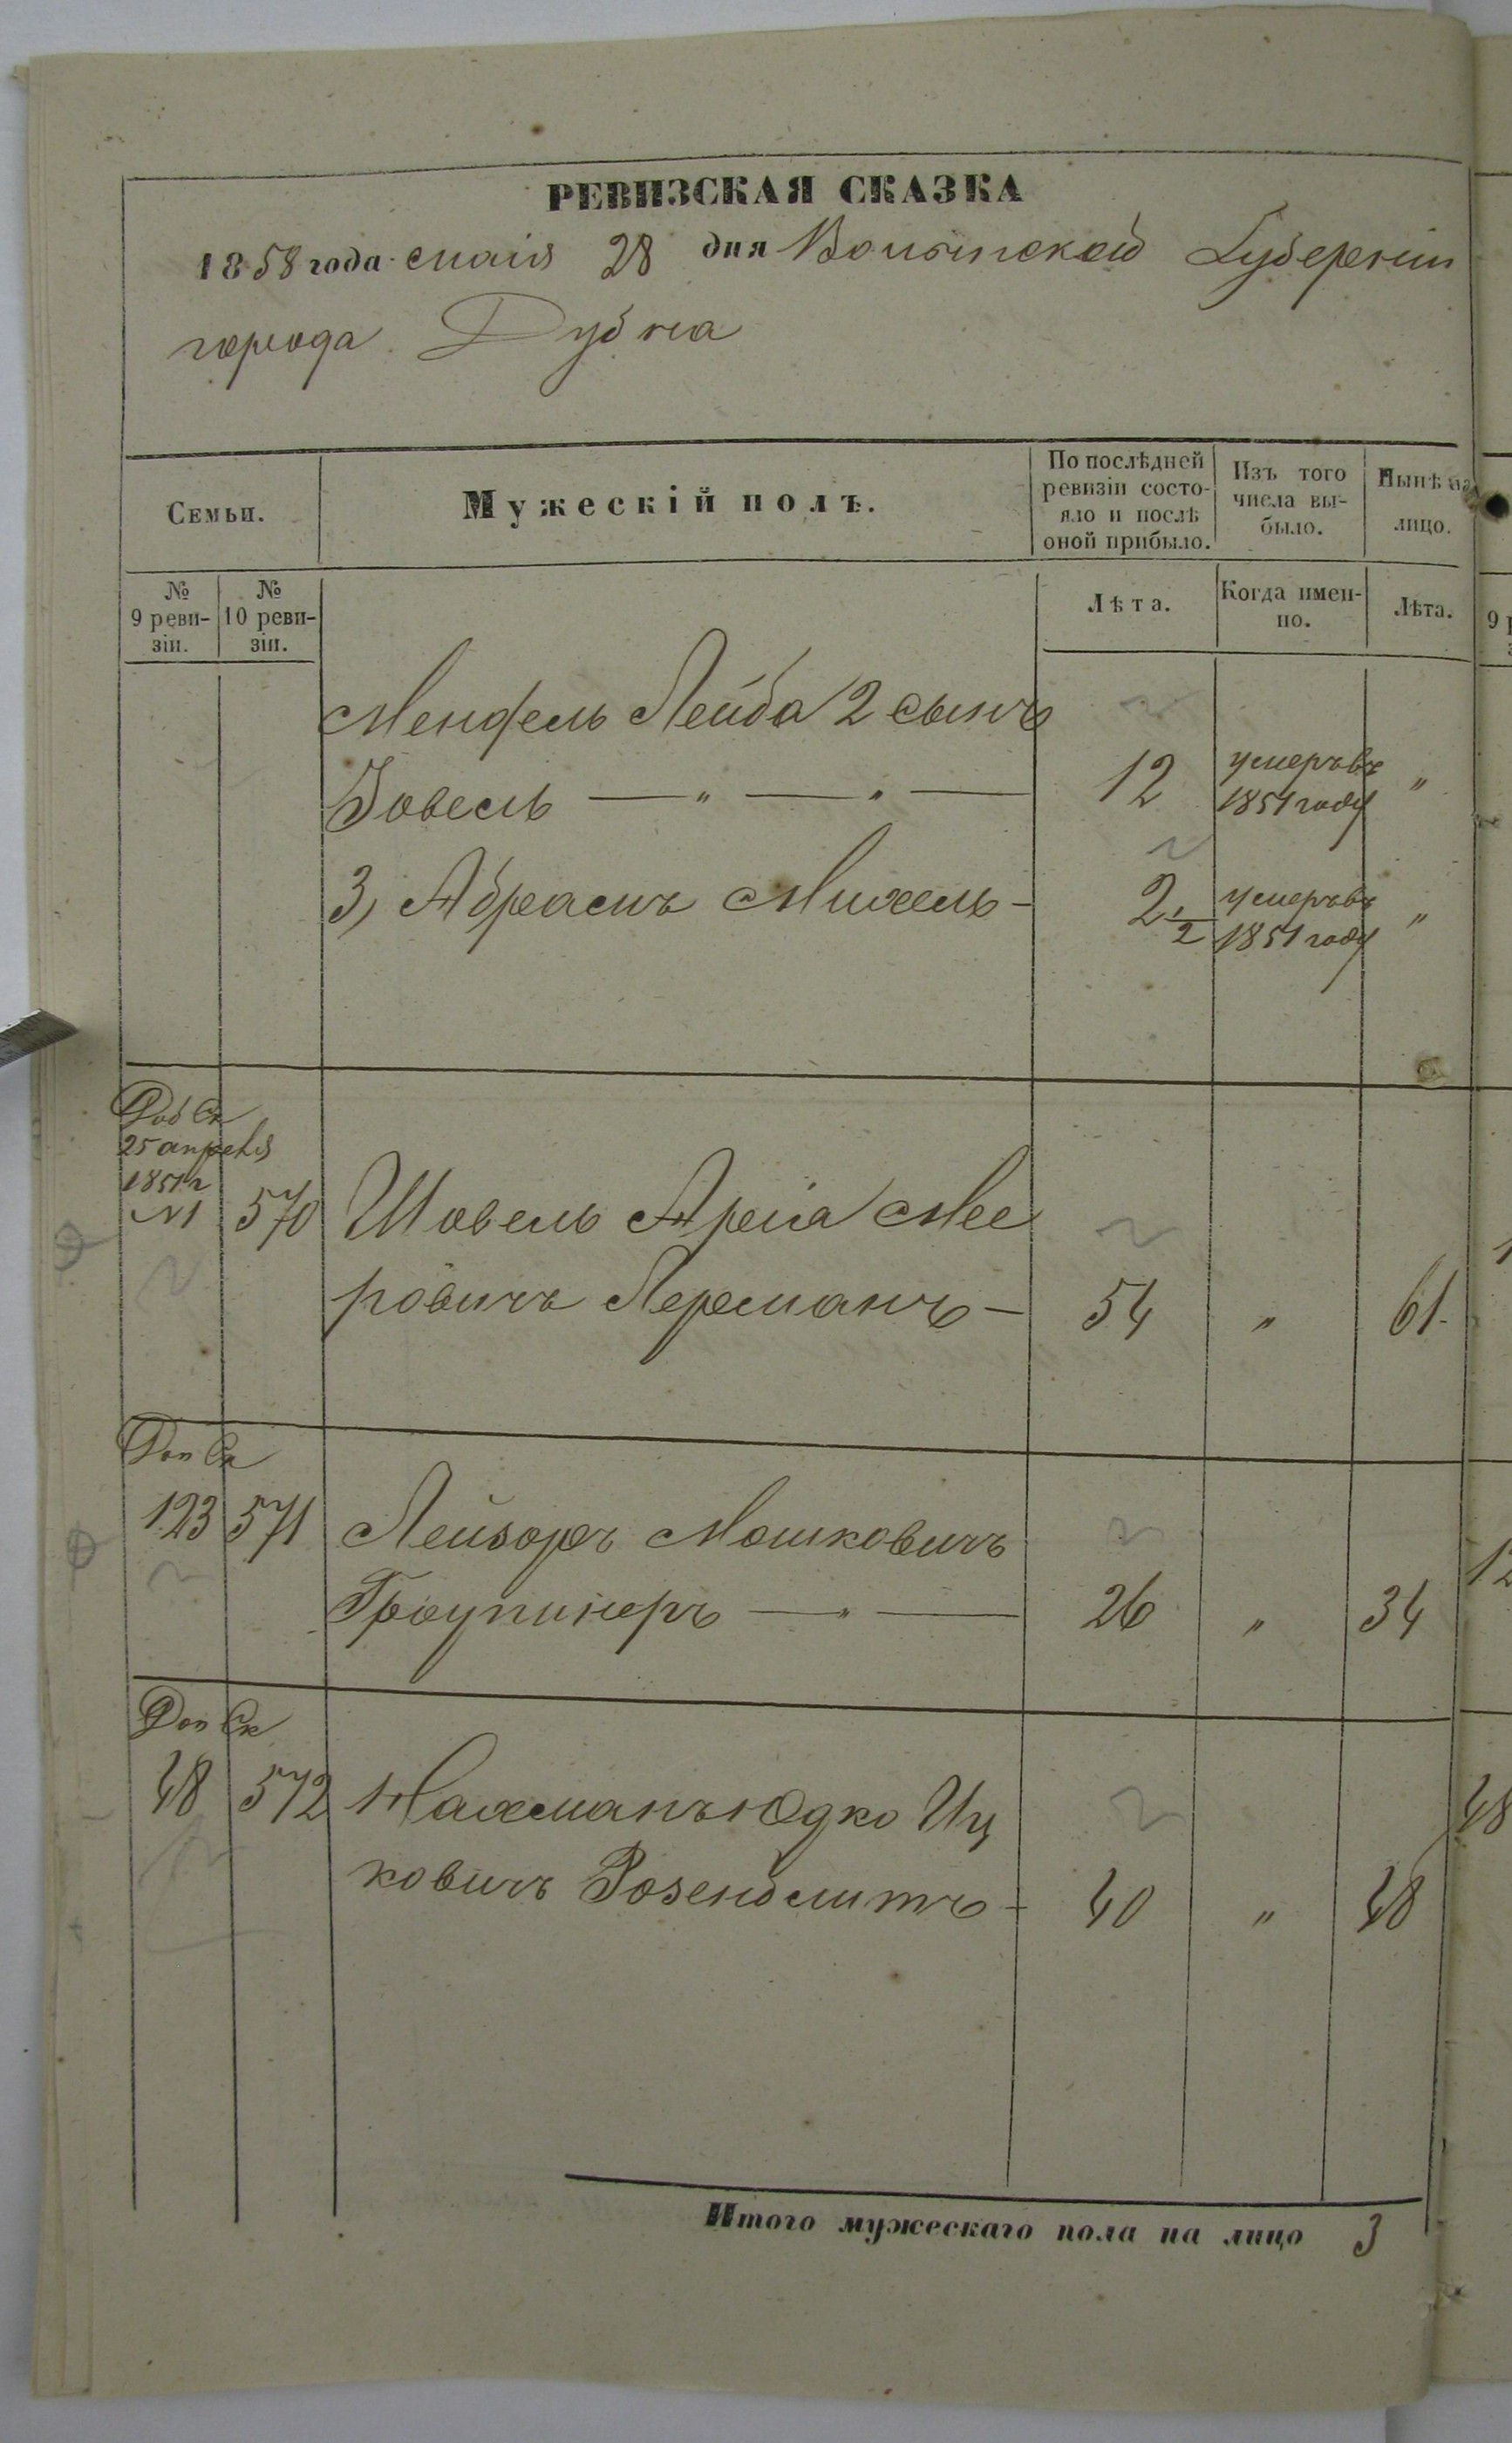 РЕВИЗСКАЯ СКАЗКА
1858 года маія 28 дня Волынской Губерніи
города Дубна
Семьи.
Мужескій полъ.
По послѣдней
ревизіи состо-
яло и послѣ
оной прибыло.
Изъ того
числа вы-
было.
Нынѣ на
лицо.
№
9 реви-
зіи.
№
10 реви-
зіи.
Лѣта.
Когда имен-
но.
Лѣта.
Мендель Лейба 2 сынъ
Іовель — „ — „ — 12 умеръ въ 1851 году „
3, Абрамъ Михель - 2 1/2 умеръ въ 1851 году „
Доб Ск
25 апреля
1851 г
№1 570 Шовель Аріа Мее
ровичъ Лерманъ — 54 „ 61.
Доп Ск
123 571 Лейзоръ Мошковичъ
26 „ 34
Доп Ск
48 572 Нахманъ Юдко Иц
ковичъ Розенблитъ - 40 „ 48
Итого мужескаго пола на лицо 3
9
12
48